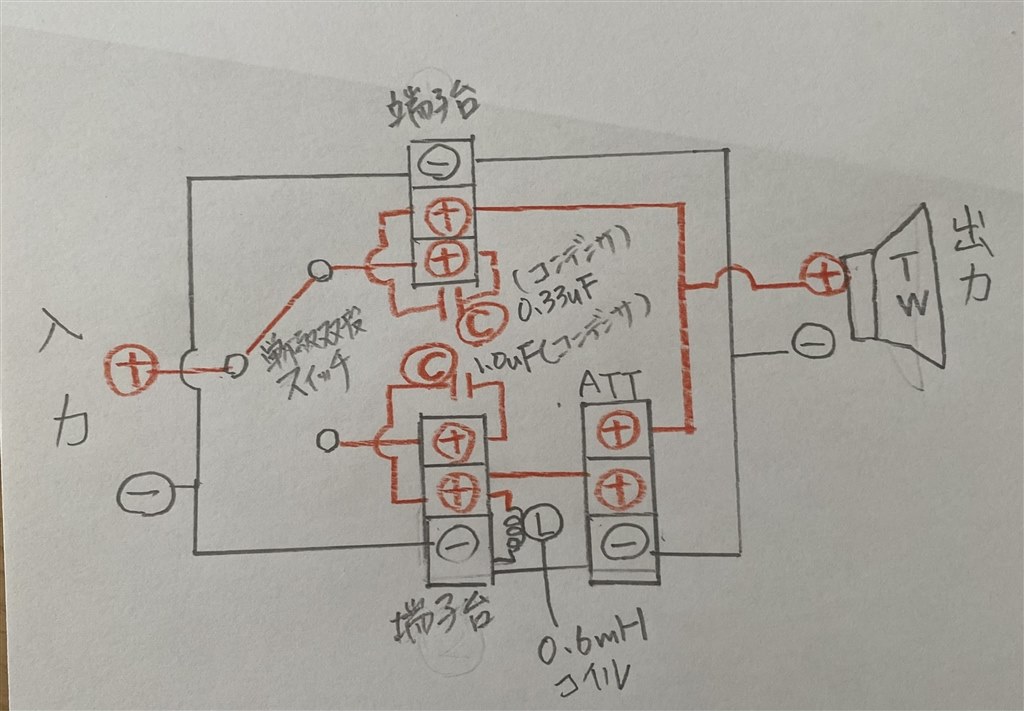 端子台
⊖
⊕
⊕
(コンデンサ)
0.33uF
Ⓒ
単極双投
スイッチ
入
力
⊕
⊖
Ⓒ
1.0uF(コンデンサ)
⊕
⊕
⊖
端子台
Ⓛ
0.6mH
コイル
ATT
⊕
⊕
⊖
⊕
⊖
TW
出
力